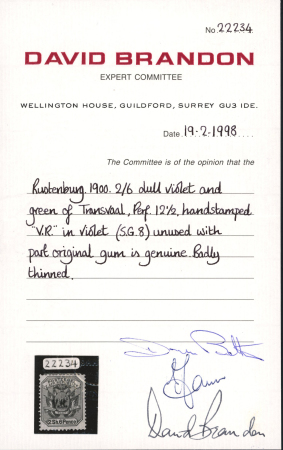 No. 22234
DAVID BRANDON
EXPERT COMMITTEE
WELLINGTON HOUSE, GUILDFORD, SURREY GU3 IDE.
Date 19.2.1998....
The Committee is of the opinion that the
Rustenburg. 1900. 2/6 dull violet and
green of Transvaal, Perf. 12½, handstamped
"V.R." in violet (S.G.8) unused with
part original gum is genuine. Badly
thinned.
22234
2 Sh. 6 Pence
David Brandon